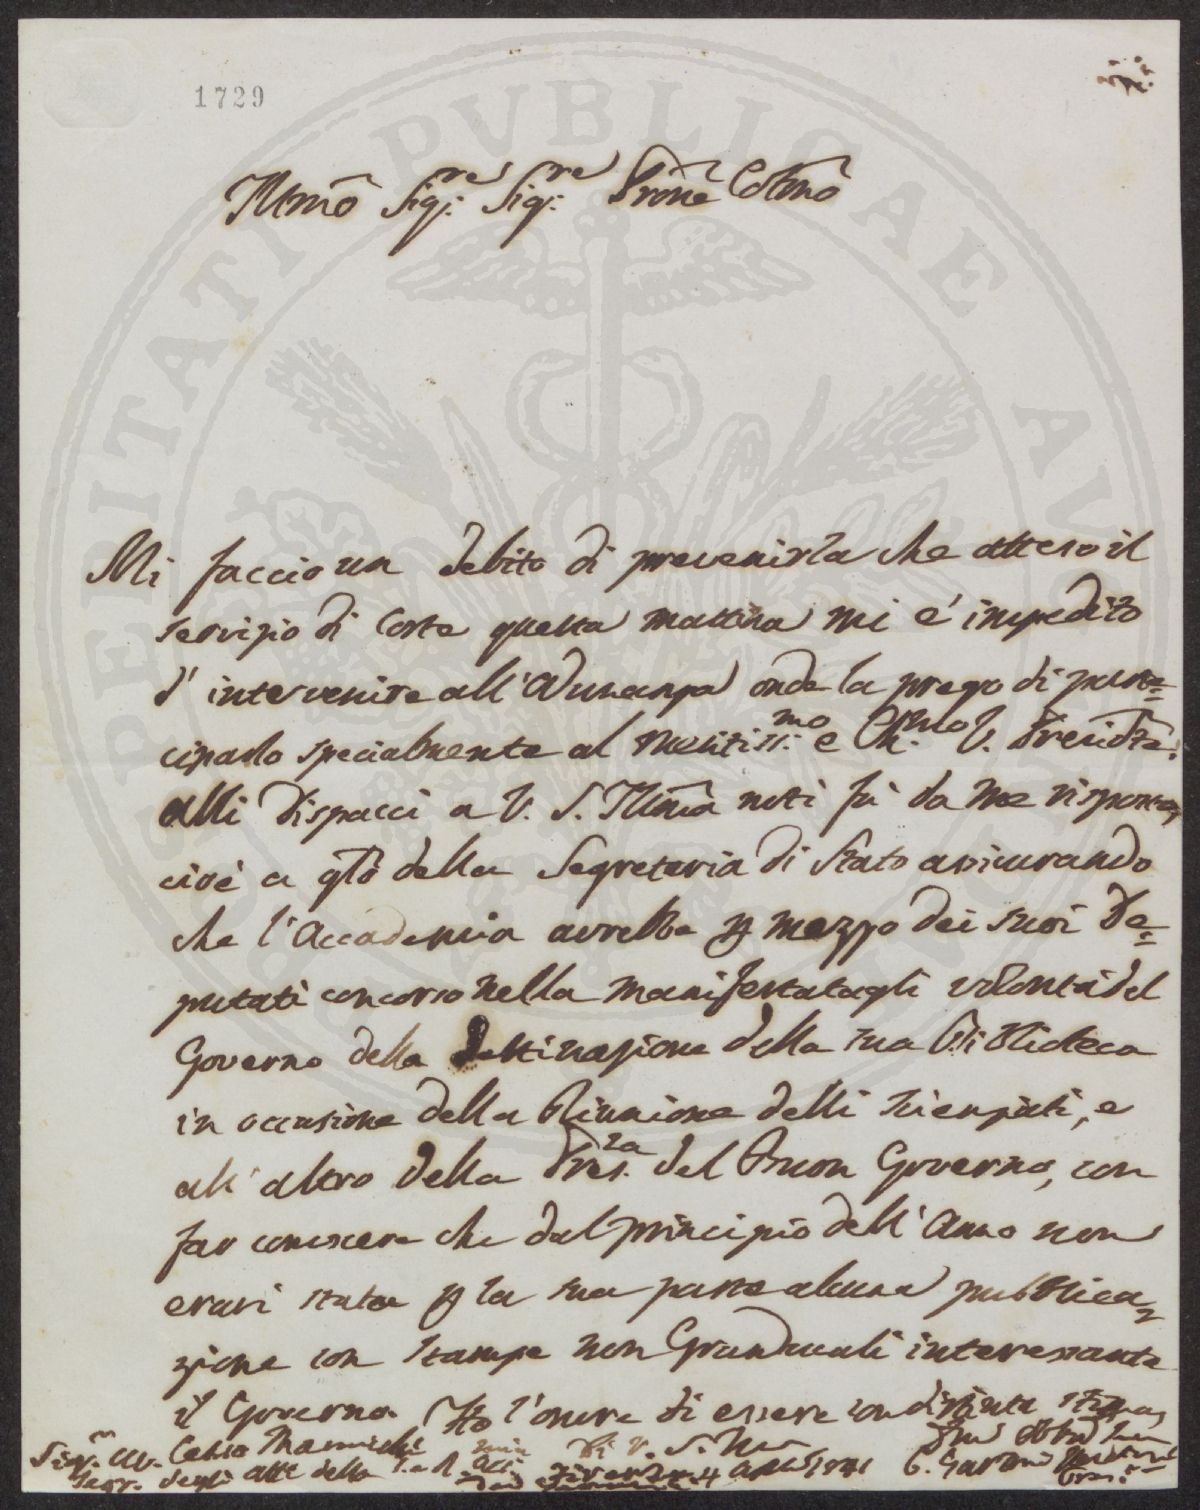 1729
Illmo Sigre Sigre Prone Colmo
Mi faccio un debito di prevenirla che atteso il
servizio di Corte questa mattina mi è impedito
d'intervenire all'Adunanza onde la prego di parte=
ciparlo specialmente al meritissmo e Chmo V. Presidte.
Alli Dispacci a V. S. Illma noti fù da me risposto,
cioè a qto della Segreteria di Stato assicurando
che l'Accademia avrebbe p mezzo dei suoi De=
putati concorso nella manifestatagli volontà del
Governo della destinazione della sua Biblioteca
in occasione della Riunione delli Scienziati, e
all'altro della Presza del Buon Governo, con
far conoscere che dal principio dell'Anno non
eravi stata p la sua parte alcuna pubblica=
zione con stampe non Granducali interessante
il Governo. Ho l'onore di essere con distinta stima
Di V. S. Illma
Sigr. Avv. Celso Marzucchi
Segr. degli Atti della